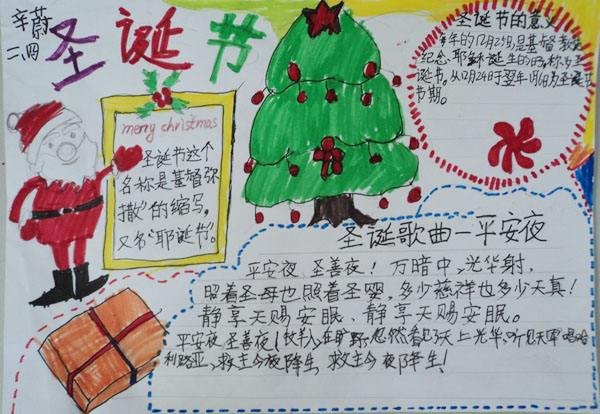 辛蔚
二、四
圣诞节
merry christmas
圣诞节这个
名称是基督弥
撒"的缩写,
又名"耶诞节"。
圣诞节的意义
年的12月25日,是基督教
纪念耶稣诞生的日
诞节,从12月24日于翌年1月
节期。
圣诞歌曲—平安夜
平安夜、圣善夜!万暗中,光华射,
照着圣母也照着圣婴,多少慈祥也多少天真!
静享天赐安眠、静享天赐安眠。
平安夜 圣善夜!牧羊人在旷野,忽然看见了天上光华,听见天军唱哈
利路亚,救主今夜降生 救主今夜降生!